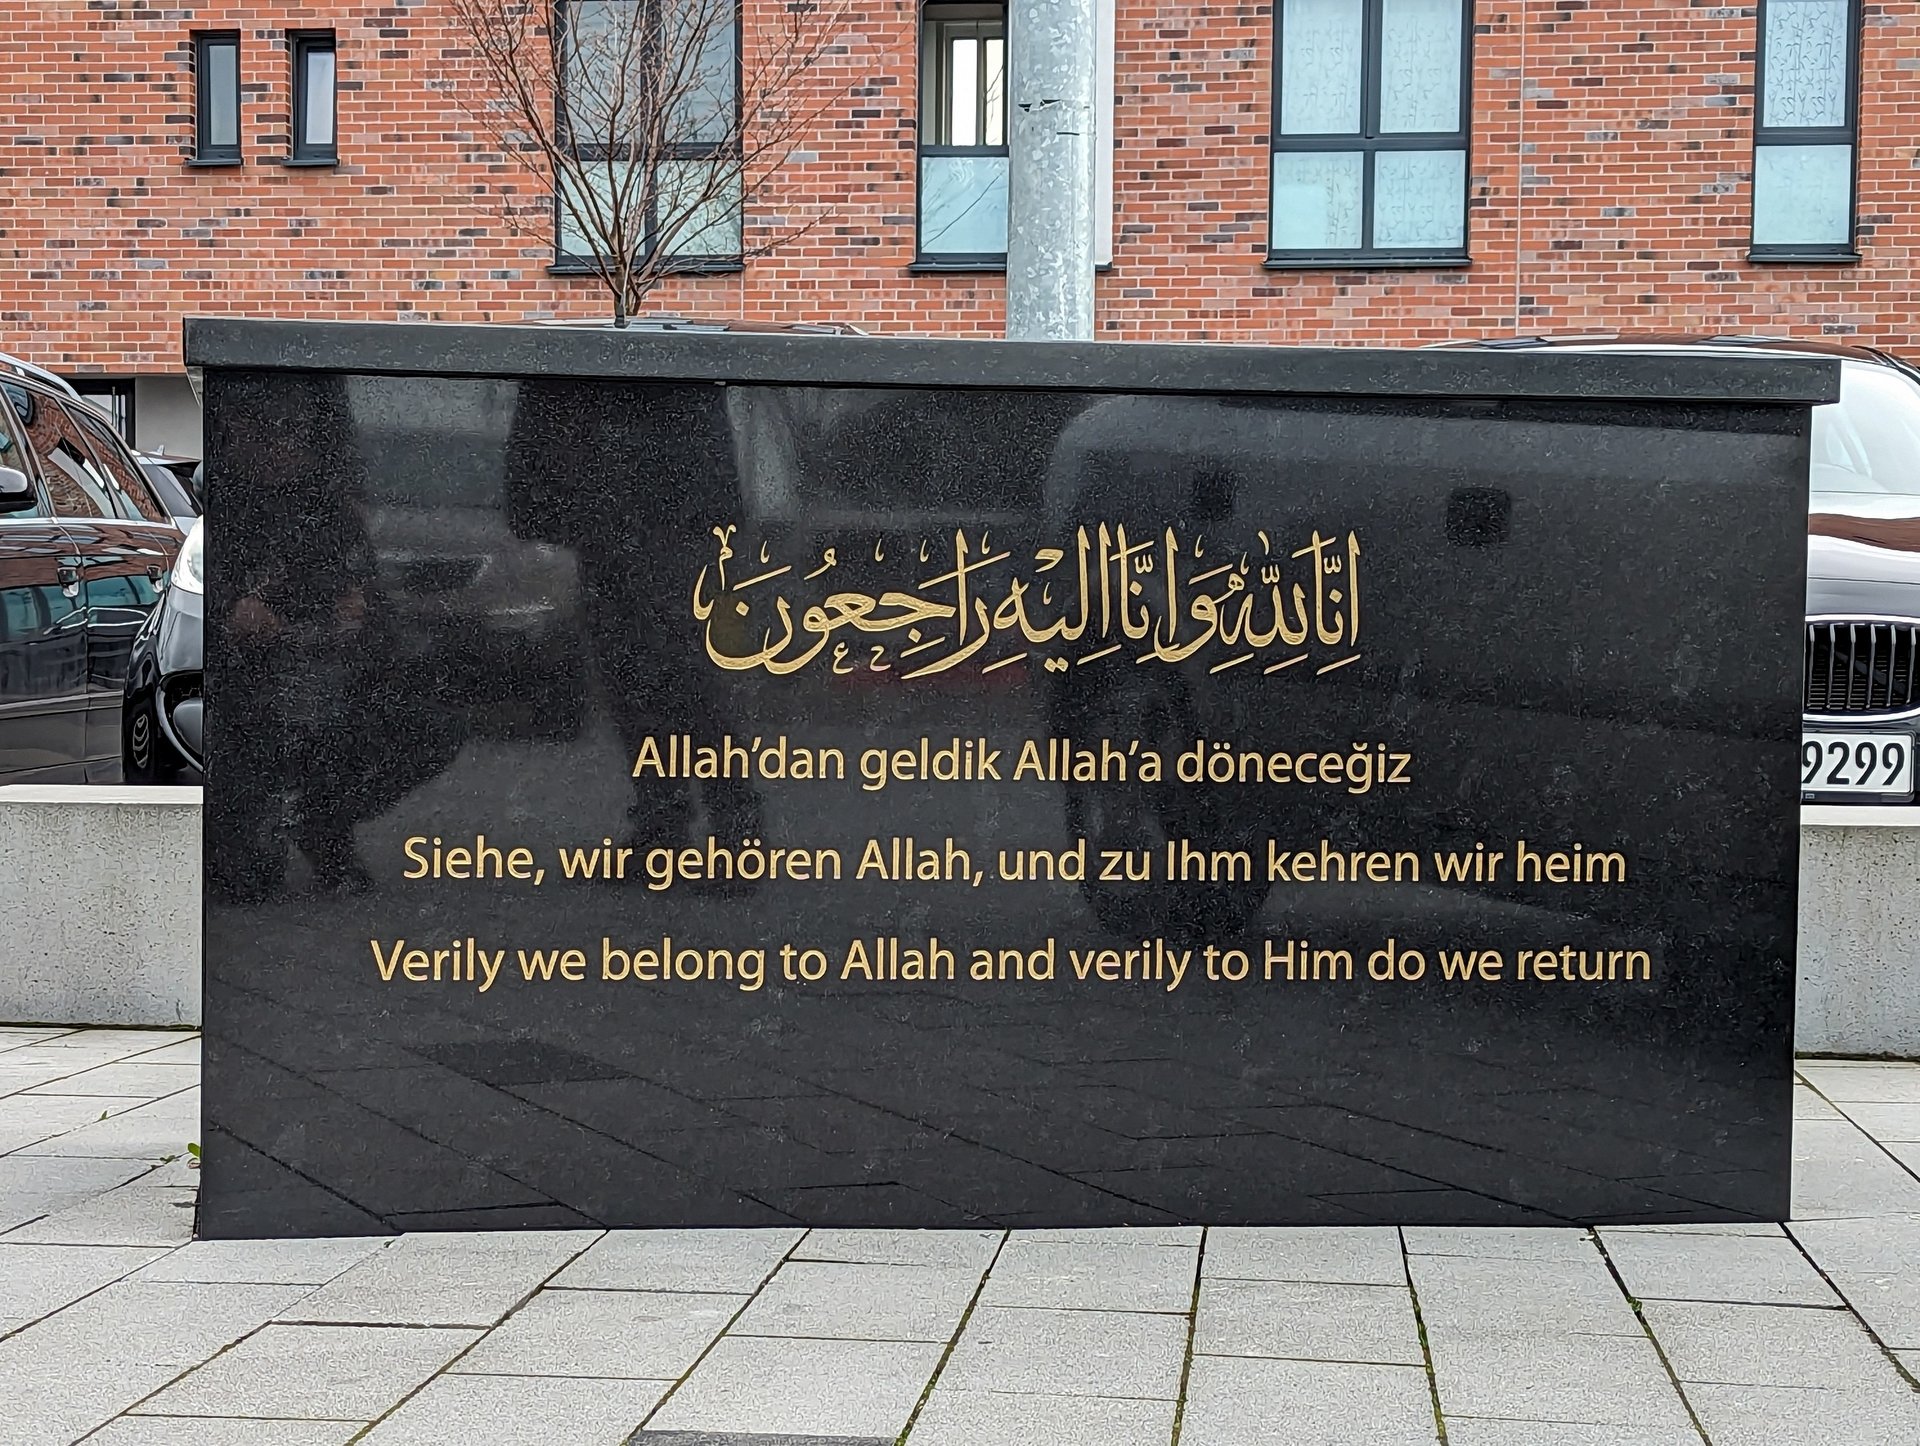 اِنَّا لِلّٰهِ وَاِنَّا اِلَيْهِ رَاجِعُونَ
Allah’dan geldik Allah’a döneceğiz
Siehe, wir gehören Allah, und zu Ihm kehren wir heim
Verily we belong to Allah and verily to Him do we return
9299